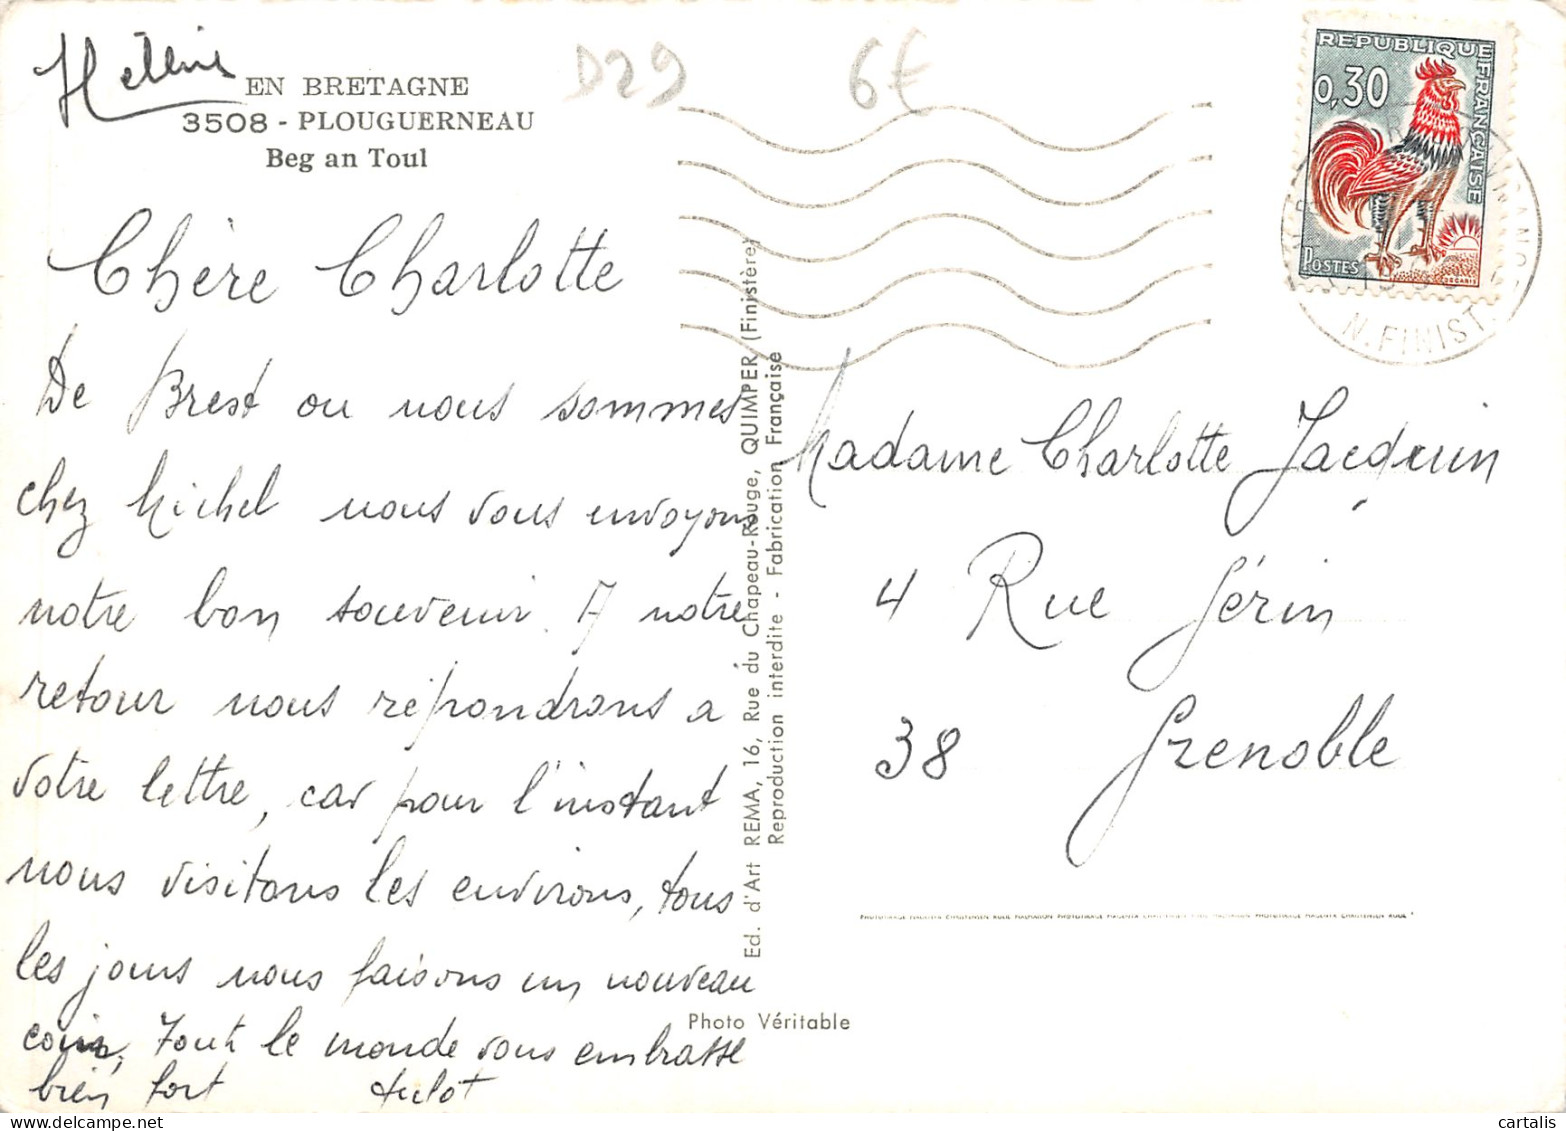 EN BRETAGNE
3508 - PLOUGUERNEAU
Beg an Toul
D29
6€
REPUBLIQUE FRANÇAISE
0,30
POSTES
DECARIS
N. FINIST.
Chère Charlotte
De Brest ou nous sommes
chez Michel nous vous envoyons
notre bon souvenir. A notre
retour nous répondrons a
votre lettre, car pour l'instant
nous visitons les environs, tous
les jours nous faisons un nouveau
coin, Tout le monde vous embrasse
bien fort
Ed. d'Art REMA, 16, Rue du Chapeau-Rouge, QUIMPER (Finistère)
Reproduction interdite - Fabrication Française
Photo Véritable
Madame Charlotte Jacquin
4 Rue Gérin
38 Grenoble
cartalis